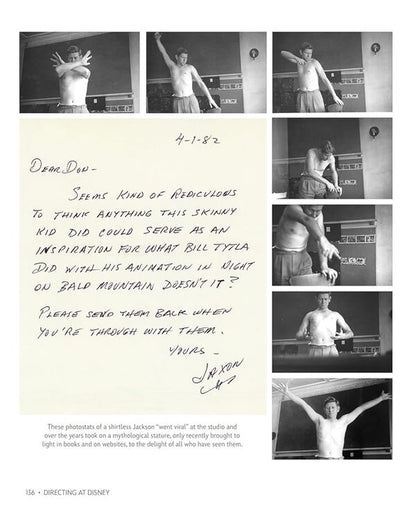 4-1-82
DEAR DON-
SEEMS KIND OF REDICULOUS
TO THINK ANYTHING THIS SKINNY
KID DID COULD SERVE AS AN
INSPIRATION FOR WHAT BILL TYTLA
DID WITH HIS ANIMATION IN NIGHT
ON BALD MOUNTAIN DOESN'T IT?
PLEASE SEND THEM BACK WHEN
YOU'RE THROUGH WITH THEM.
YOURS -
JAXON
These photostats of a shirtless Jackson "went viral" at the studio and
over the years took on a mythological stature, only recently brought to
light in books and on websites, to the delight of all who have seen them.
136 • DIRECTING AT DISNEY